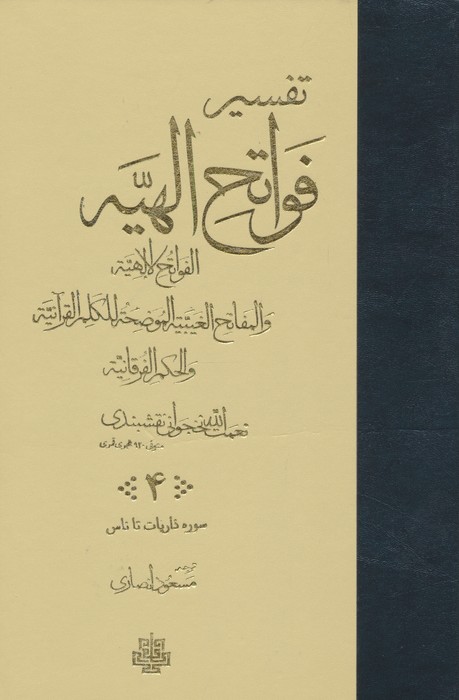 تفسیر
فواتح الهیّه
الفواتح الالهیّة
والمفاتح الغیبیّة الموضحة للکلم القرآنیّة
والحکم الفرقانیّة
نعمت الله نخجوانی نقشبندی
متوفی ۹۲۰ هجری قمری
۴
سوره ذاریات تا ناس
ترجمه
مسعود انصاری